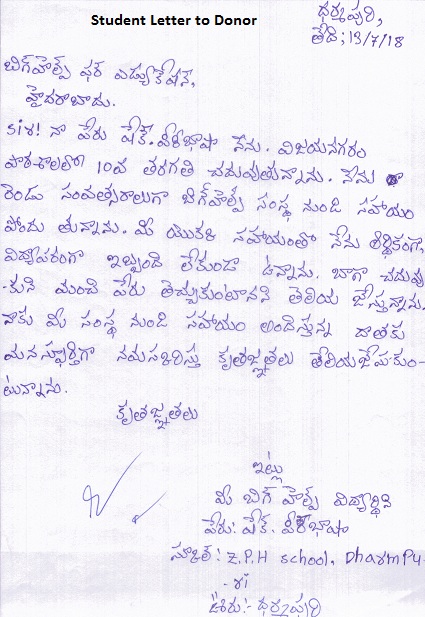 Student Letter to Donor
ధర్మపురి,
తేది; 13/7/18
బిగ్‌హెల్ప్ ఫర్ ఎడ్యుకేషన్,
హైదరాబాదు.
sir! నా పేరు షేక్. వీరీభాషా నేను. విజయనగరం
పాఠశాలలో 10వ తరగతి చదువుతున్నాను. నేను
రెండు సంవత్సరాలుగా బిగ్‌హెల్ప్ సంస్థ నుండి సహాయం
పోందు తున్నాను. మీ యొకక సహాయంతో నేను ఆర్ధికంగా,
విద్యాపరంగా ఇబ్బంది లేకుండా ఉన్నాను. బాగా చదువు
-కుని మంచి పేరు తెచ్చుకుంటానని తెలియ జేస్తున్నాను.
నాకు మీ సంస్థ నుండి సహాయం అందిస్తున్న దాతకు
మనస్ఫూర్తిగా నమస్కరిస్తు కృతజ్ఞతలు తెలియజేపకుం-
టున్నాను.
కృతజ్ఞతలు
ఇట్లు
మీ బిగ్ హెల్ప్ విద్యార్థిని
పేరు: షేక్. వీరీభాషా
స్కూల్: Z.P.H school, Dharmpu-
ri
ఊరు:- ధర్మపురి